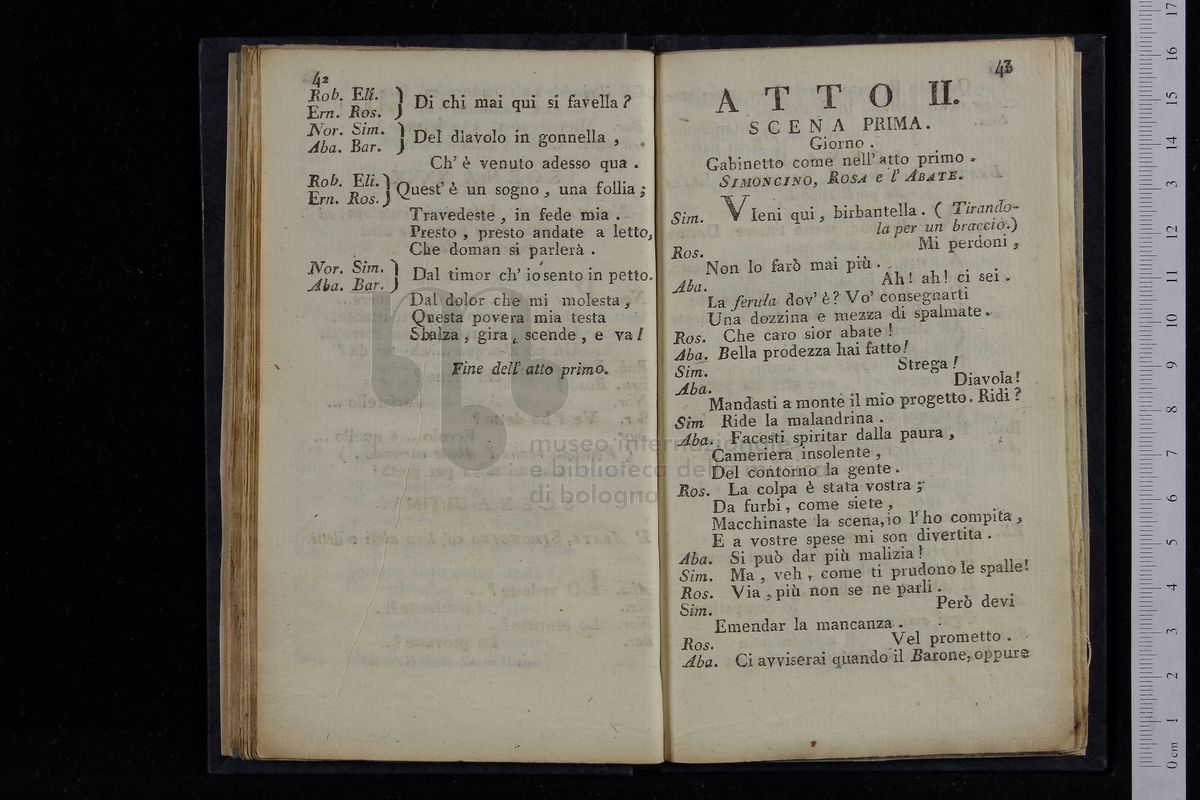 42
Rob. Eli. } Di chi mai qui si favella?
Ern. Ros.
Nor. Sim. } Del diavolo in gonnella ,
Aba. Bar.
Ch' è venuto adesso qua .
Rob. Eli. } Quest' è un sogno , una follia ;
Ern. Ros.
Travedeste , in fede mia .
Presto , presto andate a letto,
Che doman si parlerà .
Nor. Sim. } Dal timor ch' io sento in petto.
Aba. Bar.
Dal dolor che mi molesta ,
Questa povera mia testa
Sbalza , gira , scende , e va!
Fine dell' atto primo.
43
ATTO II.
SCENA PRIMA.
Giorno .
Gabinetto come nell' atto primo .
SIMONCINO, ROSA e l' ABATE.
Sim. VIeni qui , birbantella . ( Tirando-
la per un braccio.)
Ros. Mi perdoni ,
Non lo farò mai più .
Aba. Ah! ah! ci sei .
La ferula dov' è? Vo' consegnarti
Una dozzina e mezza di spalmate .
Ros. Che caro sior abate !
Aba. Bella prodezza hai fatto!
Sim. Strega !
Aba. Diavola!
Mandasti a monte il mio progetto. Ridi ?
Sim Ride la malandrina .
Aba. Facesti spiritar dalla paura ,
Cameriera insolente ,
Del contorno la gente .
Ros. La colpa è stata vostra ;
Da furbi , come siete ,
Macchinaste la scena, io l' ho compita ,
E a vostre spese mi son divertita .
Aba. Si può dar più malizia !
Sim. Ma , veh , come ti prudono le spalle!
Ros. Via , più non se ne parli .
Sim. Però devi
Emendar la mancanza .
Ros. Vel prometto .
Aba. Ci avviserai quando il Barone, oppure
museo internazionale
e biblioteca della musica
di bologna
0 cm 1 2 3 4 5 6 7 8 9 10 11 12 13 14 15 16 17